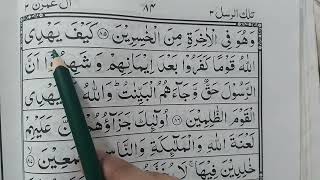 تلك الرسل ٣ ٨٤ ال عمرن ٣
وَهُوَ فِي الْاٰخِرَةِ مِنَ الْخٰسِرِيْنَ ﴿٨٥﴾ كَيْفَ يَهْدِي
اللّٰهُ قَوْمًا كَفَرُوْا بَعْدَ اِيْمَانِهِمْ وَشَهِدُوْٓا اَنَّ
الرَّسُوْلَ حَقٌّ وَّجَآءَهُمُ الْبَيِّنٰتُ ؕ وَاللّٰهُ لَا يَهْدِي
الْقَوْمَ الظّٰلِمِيْنَ ﴿٨٦﴾ اُولٰٓئِكَ جَزَآؤُهُمْ اَنَّ عَلَيْهِمْ
لَعْنَةَ اللّٰهِ وَالْمَلٰٓئِكَةِ وَالنَّاسِ اَجْمَعِيْنَ ﴿٨٧﴾
خٰلِدِيْنَ فِيْهَا ۚ لَا